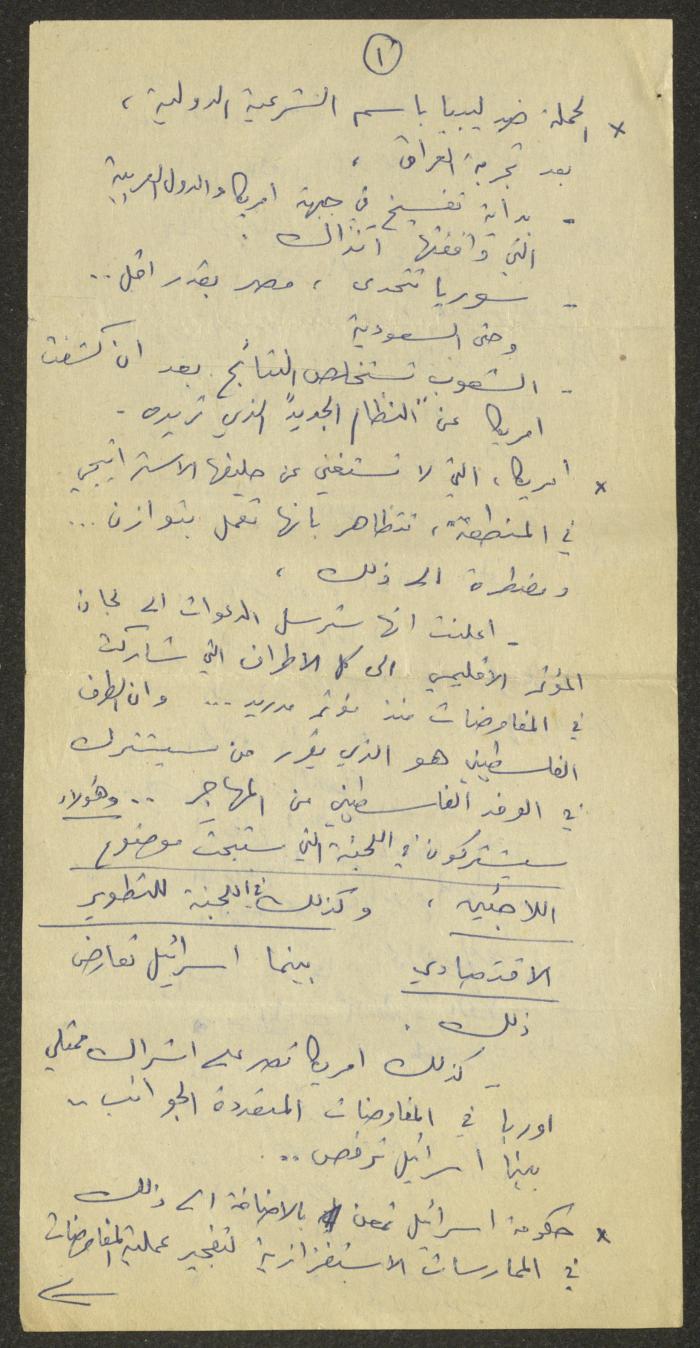 ١
× الحملة ضد ليبيا باسم الشرعية الدولية ،
بعد تجربة العراق ،
- بداية تفسخ في جبهة امريكا والدول العربية
التي وافقتها آنذاك .
- سوريا تتحدى ، مصر بقدر اقل ..
وحتى السعودية
- الشعوب تستخلص النتائج بعد ان كشفت
امريكا عن "النظام الجديد" الذي تريده .
× امريكا ، التي لا تستغني عن حليفها الاستراتيجي
في المنطقة ، تتظاهر بانها تعمل بتوازن ...
ومضطرة الى ذلك ،
- اعلنت انها سترسل الدعوات الى لجان
المؤتمر الاقليمي الى كل الاطراف التي شاركت
في المفاوضات منذ مؤتمر مدريد ... وان الطرف
الفلسطيني هو الذي يقرر من سيشترك
في الوفد الفلسطيني من المهاجر .. وهؤلاء
سيشتركون في اللجنة التي ستبحث موضوع
اللاجئين ، وكذلك في اللجنة للتطوير
الاقتصادي بينما اسرائيل تعارض
ذلك .
- كذلك امريكا تصر على اشراك ممثلي
اوربا في المفاوضات المتعددة الجوانب ..
بينما اسرائيل ترفض ..
× حكومة اسرائيل تمعن بالاضافة الى ذلك
في الممارسات الاستفزازية لتفجير عملية المفاوضات